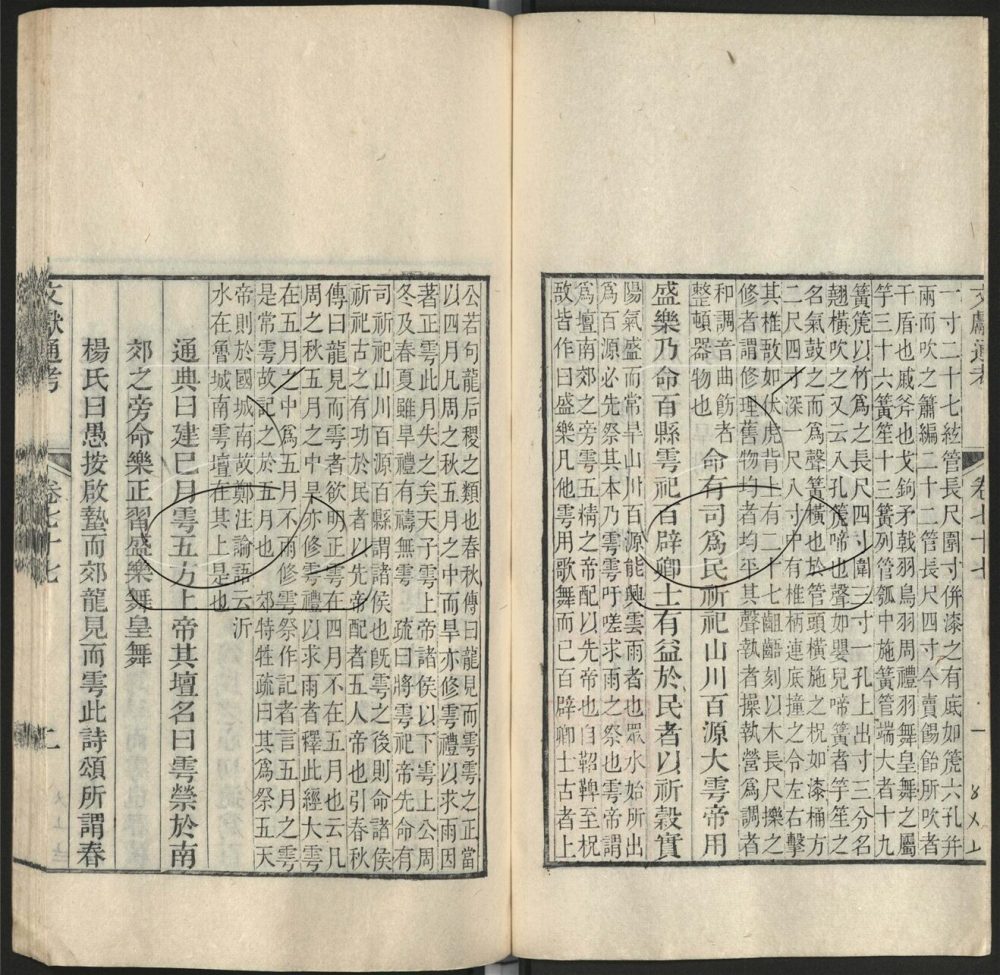 文獻通考
卷七十七
一寸二十七絃管長尺圍寸併漆之有底如篪六孔幷
兩而吹之簫編二十二管長尺四寸今賣餳飴所吹者
干盾也戚斧也戈鉤矛戟羽鳥羽周禮羽舞皇舞之屬
竽三十六簧笙十三簧列管瓠中施簧管端大者十九
簧篪以竹爲之長尺四寸圍三寸一孔上出寸三分名
翹橫吹之又云八孔篪啼也聲如嬰兒啼簧者竽笙之
名氣鼓之而爲聲簧橫也於管頭橫施之柷如漆桶方
二尺四寸深一尺八寸中有椎柄連底撞之令左右擊
其椎敔如伏虎背上有二十七齟齬刻以木長尺擽之
修者謂修理舊物均者均平其聲執者操執營爲調者
和調音曲飭者
整頓器物也 命有司爲民祈祀山川百源大雩帝用
盛樂乃命百縣雩祀百辟卿士有益於民者以祈穀實
陽氣盛而常旱山川百源能興雲雨者也眾水始所出
爲百源必先祭其本乃雩雩吁嗟求雨之祭也雩帝謂
爲壇南郊之旁雩五精之帝配以先帝也自鞀鞞至柷
敔皆作曰盛樂凡他雩用歌舞而已百辟卿士古者上
公若句龍后稷之類也春秋傳曰龍見而雩雩之正當
以四月凡周之秋五月之中而旱亦修雩禮以求雨因
著正雩此月失之矣天子雩上帝諸侯以下雩上公周
冬及春夏雖旱禮有禱無雩 疏曰將雩祀帝先命有
司祈祀山川百源百縣謂諸侯也旣雩之後則命諸侯
祈祀古之有功於民者以先帝配者五人帝也引春秋
傳曰龍見而雩者欲明正雩在四月不在五月也云凡
周之秋五月之中旱亦修雩禮以求雨者釋此經大雩
在五月之中爲五月不雨修雩祭作記者言五月之雩
是常雩故記之於五月也 郊特牲疏曰其爲祭五天
帝則於國城南故鄭注論語云沂
水在魯城南雩壇在其上是也
通典曰建巳月雩五方上帝其壇名曰雩禜於南
郊之旁命樂正習盛樂舞皇舞
楊氏曰愚按啟蟄而郊龍見而雩此詩頌所謂春
文獻通考
卷七十七